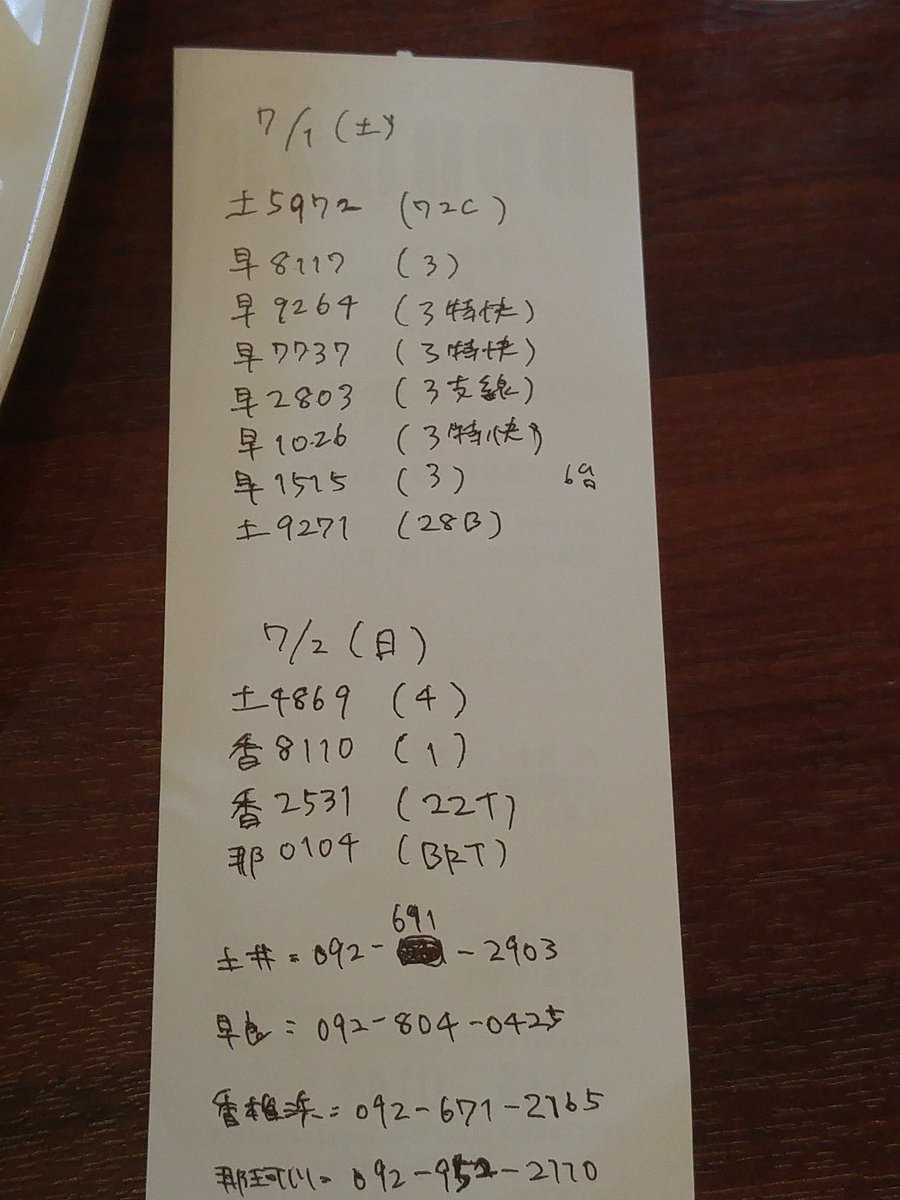 7/1 (土)
土5972 (72C)
早8117 (3)
早9264 (3特快)
早7737 (3特快)
早2803 (3支線)
早1026 (3特快)
早1515 (3) 6台
土9271 (28B)
7/2 (日)
土4869 (4)
香8110 (1)
香2531 (22T)
那0104 (BRT)
691
土井=092- -2903
早良=092-804-0425
香椎浜=092-671-2765
那珂川=092-952-2770